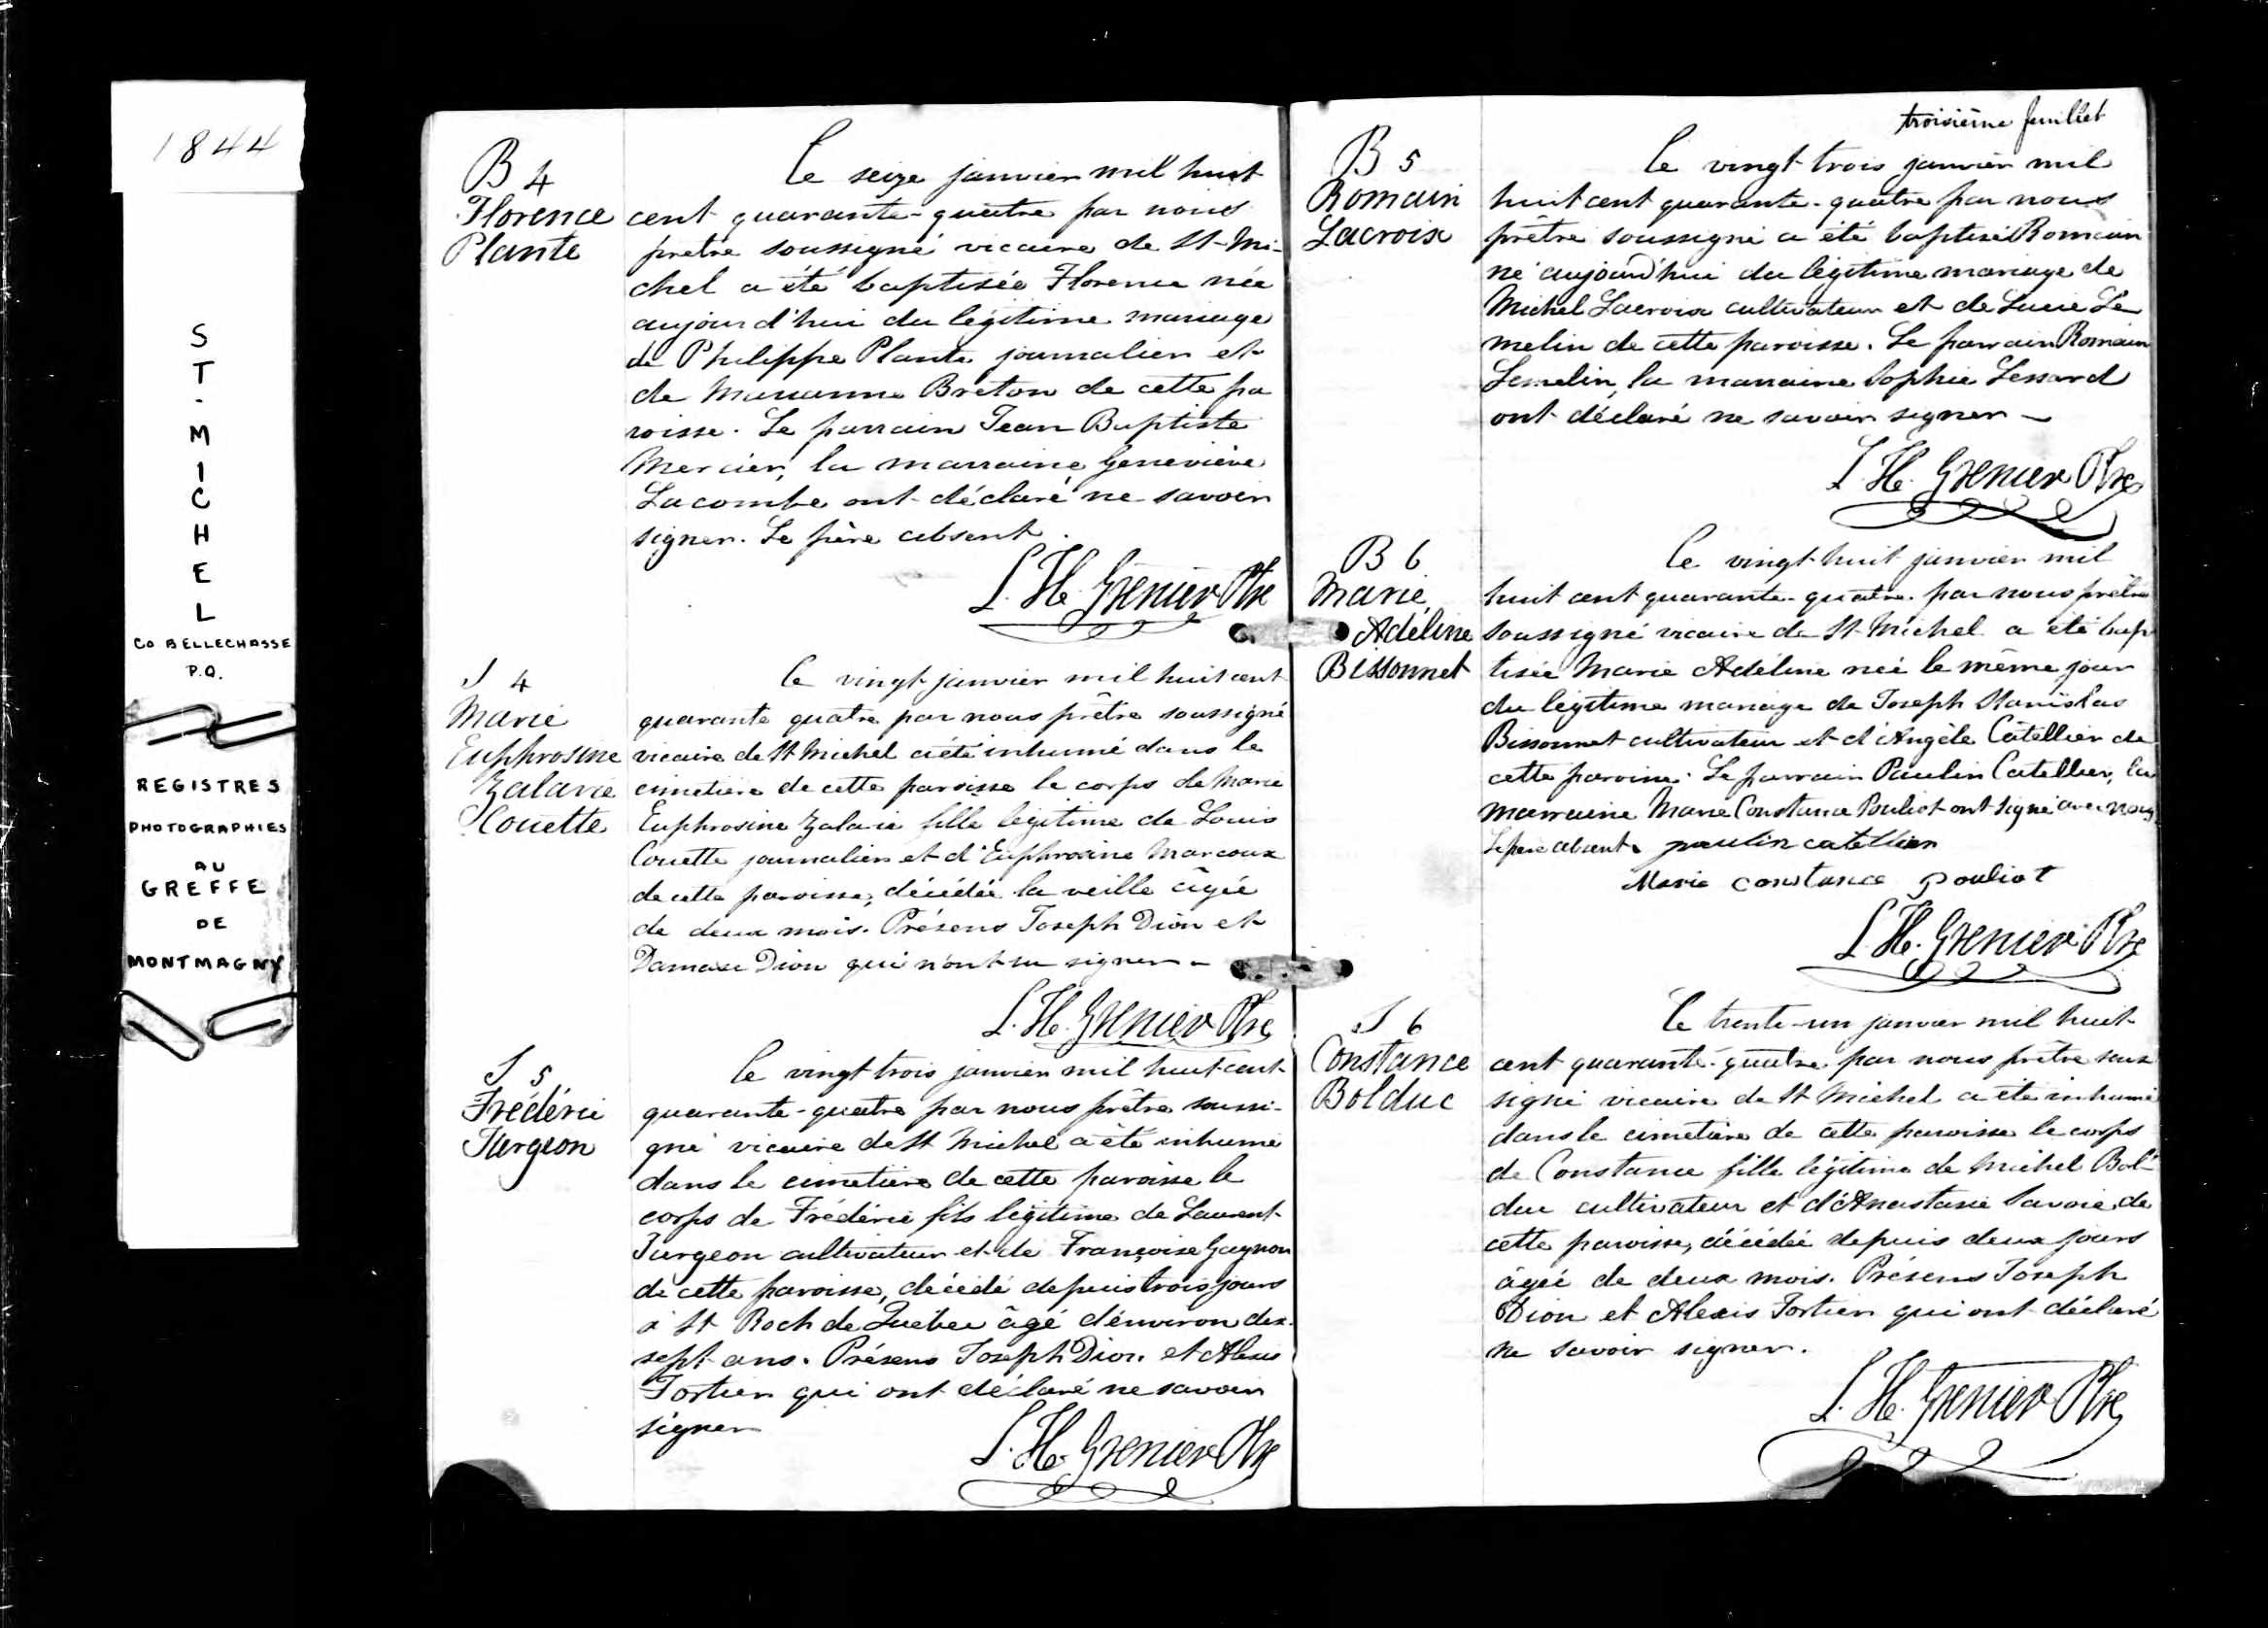 1844
ST-MICHEL
CO BELLECHASSE
P.Q.
REGISTRES
PHOTOGRAPHIES
AU
GREFFE
DE
MONTMAGNY
B 4
Florence
Plante
Le seize janvier mil huit
cent quarante-quatre par nous
prêtre soussigné vicaire de St-Mi-
chel a été baptisée Florence née
aujourd'hui du légitime mariage
de Philippe Plante journalier et
de Marianne Breton de cette pa
roisse. Le parrain Jean Baptiste
Mercier, la marraine Geneviève
Lacombe ont déclaré ne savoir
signer. Le père absent.
L. H. Grenier Ptre
S 4
Marie
Euphrosine
Zalarie
Couette
Le vingt janvier mil huit cent
quarante quatre par nous prêtre soussigné
vicaire de St Michel a été inhumé dans le
cimetière de cette paroisse le corps de Marie
Euphrosine Zalarie fille légitime de Louis
Couette journalier et d'Euphrosine Marcoux
de cette paroisse, décédée la veille âgée
de deux mois. Présens Joseph Dion et
Damase Dion qui n'ont su signer -
L. H. Grenier Ptre
S 5
Fréderic
Turgeon
Le vingt trois janvier mil huit cent
quarante-quatre par nous prêtre soussi-
gné vicaire de St Michel a été inhumé
dans le cimetière de cette paroisse le
corps de Fréderic fils légitime de Laurent
Turgeon cultivateur et de Françoise Gagnon
de cette paroisse, décédé depuis trois jours
à St Roch de Québec âgé d'environ dix
sept ans. Présens Joseph Dion et Alexis
Fortier qui ont déclaré ne savoir
signer
L. H. Grenier Ptre
troisième feuillet
B 5
Romain
Lacroix
Le vingt trois janvier mil
huit cent quarante-quatre par nous
prêtre soussigné a été baptisé Romain
né aujourd'hui du légitime mariage de
Michel Lacroix cultivateur et de Lucie Le
melin de cette paroisse. Le parrain Romain
Lemelin, la marraine Sophie Lessard
ont déclaré ne savoir signer -
L. H. Grenier Ptre
B 6
Marie
Adéline
Bissonnet
Le vingt-huit janvier mil
huit cent quarante-quatre par nous prêtre
soussigné vicaire de St Michel a été bap
tisée Marie Adéline née le même jour
du légitime mariage de Joseph Stanislas
Bissonnet cultivateur et d'Angèle Catellier de
cette paroisse. Le parrain Paulin Catellier, la
marraine Marie Constance Pouliot ont signé avec nous
Le père absent. paulin catellier
Marie constance pouliot
L. H. Grenier Ptre
S 6
Constance
Bolduc
Le trente-un janvier mil huit
cent quarante-quatre par nous prêtre sous
signé vicaire de St Michel a été inhumé
dans le cimetière de cette paroisse le corps
de Constance fille légitime de Michel Bol-
duc cultivateur et d'Anastasie Savoie de
cette paroisse, décédée depuis deux jours
âgée de deux mois. Présens Joseph
Dion et Alexis Fortier qui ont déclaré
ne savoir signer.
L. H. Grenier Ptre